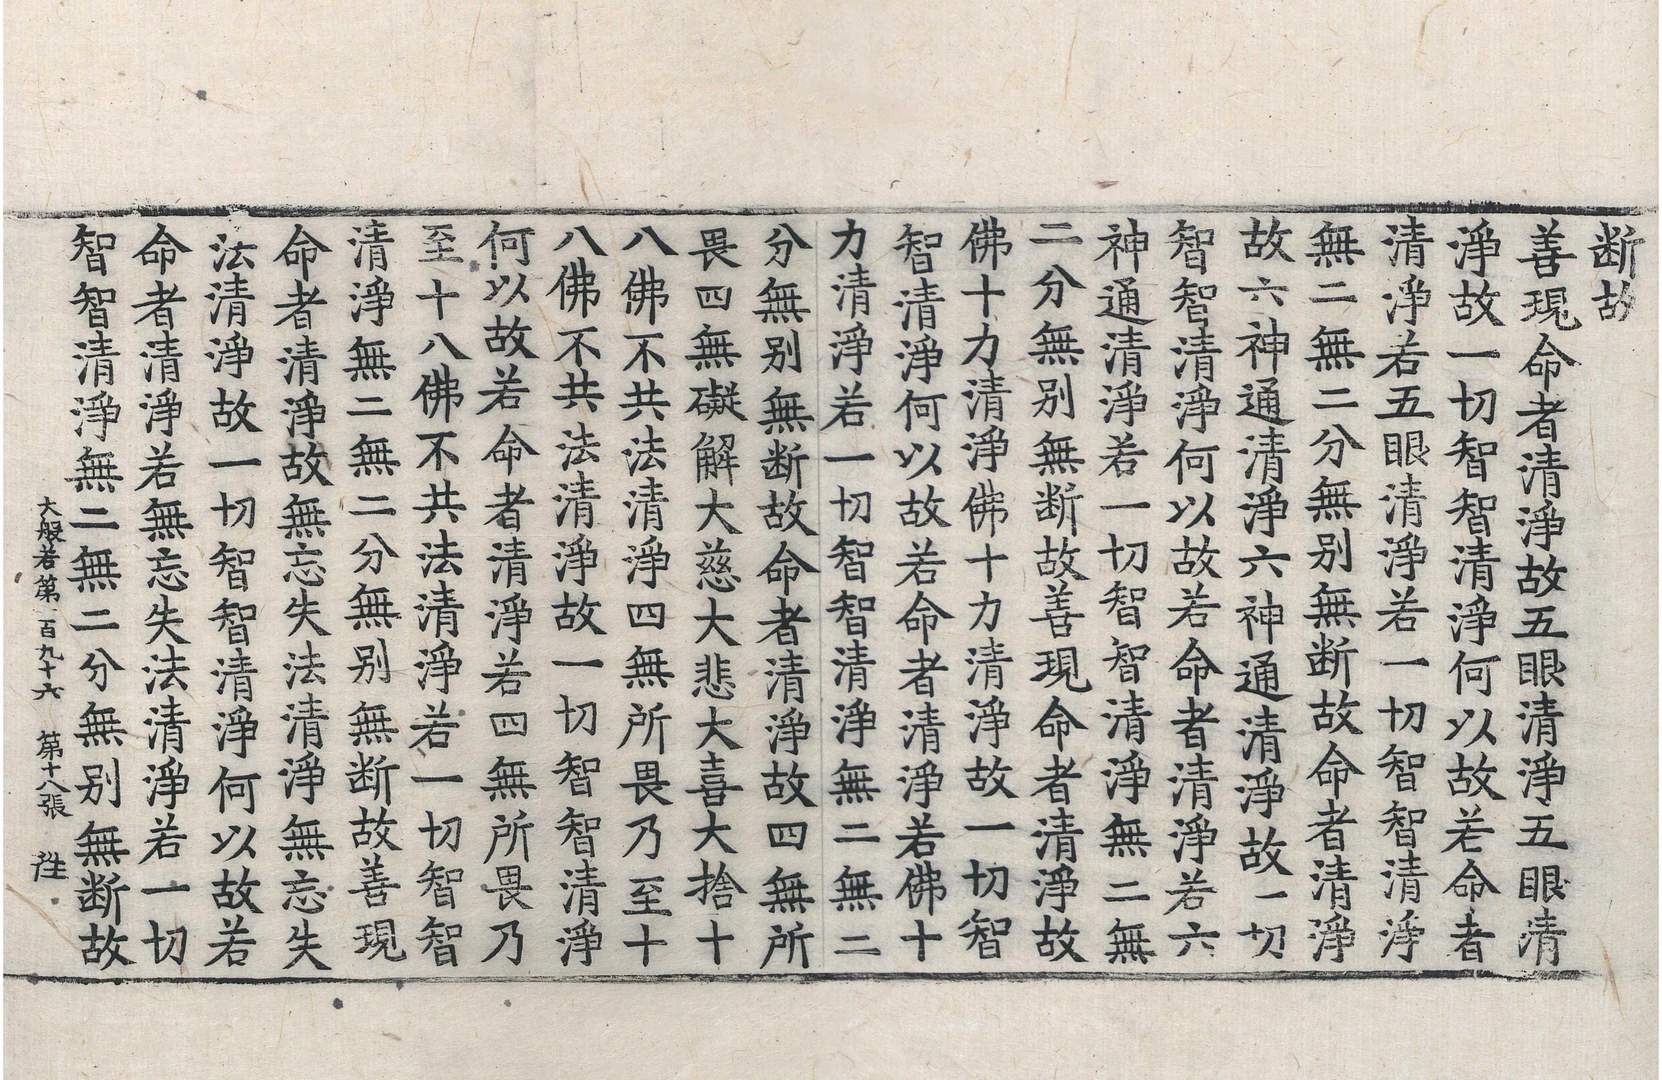 断故
善現命者清淨故五眼清淨五眼清
淨故一切智智清淨何以故若命者
清淨若五眼清淨若一切智智清淨
無二無二分無别無断故命者清淨
故六神通清淨六神通清淨故一切
智智清淨何以故若命者清淨若六
神通清淨若一切智智清淨無二無
二分無别無断故善現命者清淨故
佛十力清淨佛十力清淨故一切智
智清淨何以故若命者清淨若佛十
力清淨若一切智智清淨無二無二
分無别無断故命者清淨故四無所
畏四無礙解大慈大悲大喜大捨十
八佛不共法清淨四無所畏乃至十
八佛不共法清淨故一切智智清淨
何以故若命者清淨若四無所畏乃
至十八佛不共法清淨若一切智智
清淨無二無二分無别無断故善現
命者清淨故無忘失法清淨無忘失
法清淨故一切智智清淨何以故若
命者清淨若無忘失法清淨若一切
智智清淨無二無二分無别無断故
大般若第一百九十六 第十八張 徃